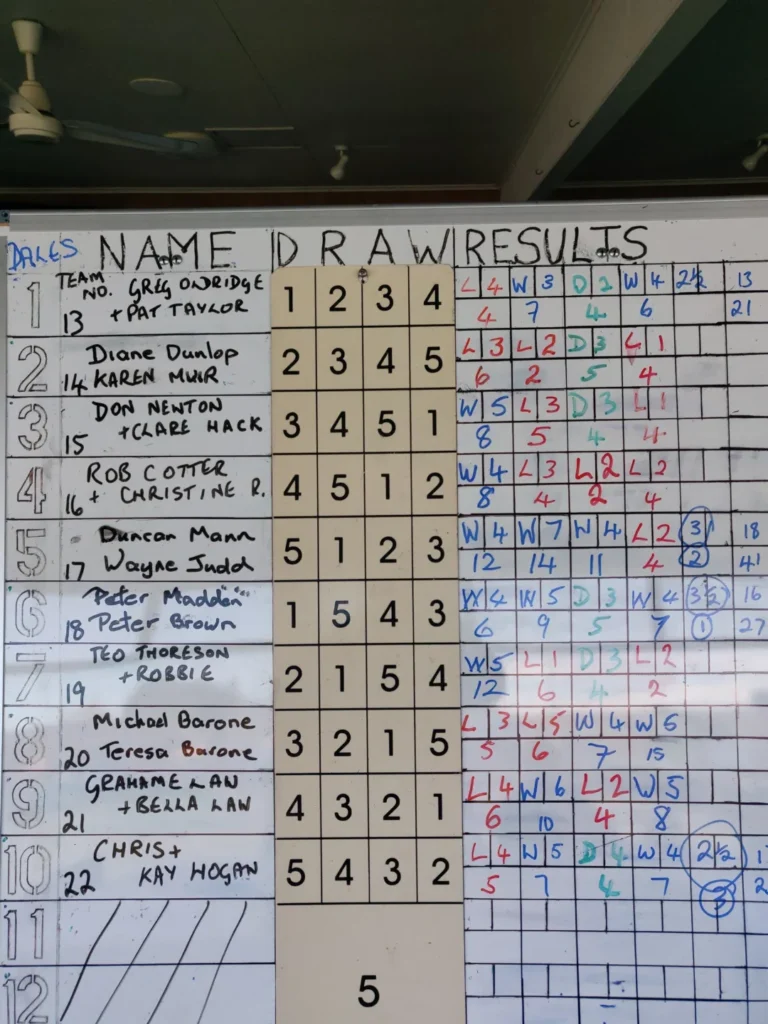 DALES NAME DRAW RESULTS
1 TEAM NO. GREG OLDRIDGE 1 2 3 4 L 4 W 3 D 2 W 4 2½ 13
13 + PAT TAYLOR 4 7 4 6 21
2 Diane Dunlop 2 3 4 5 L 3 L 2 D 3 L 1
14 KAREN MUIR 6 2 5 4
3 DON NENTON 3 4 5 1 W 5 L 3 D 3 L 1
15 + CLARE HACK 8 5 4 4
4 ROB COTTER 4 5 1 2 W 4 L 3 L 2 L 2
16 + CHRISTINE R. 8 4 2 4
5 Duncan Mann 5 1 2 3 W 4 W 7 W 4 L 2 3 18
17 Wayne Judd 12 14 11 4 2 41
6 "Peter Madden" 1 5 4 3 W 4 W 5 D 3 W 4 3½ 16
18 Peter Brown 6 9 5 7 1 27
7 TEO THORESON 2 1 5 4 W 5 L 1 D 3 L 2
19 + ROBBIE 12 6 4 2
8 Michael Barone 3 2 1 5 L 3 L 5 W 4 W 6
20 Teresa Barone 5 6 7 15
9 GRAHAME LAW 4 3 2 1 L 4 W 6 L 2 W 5
21 + BELLA LAW 6 10 4 8
10 CHRIS + 5 4 3 2 L 4 W 5 D 4 W 4 2½
22 KAY HOGAN 5 7 4 7 3
11
12 5